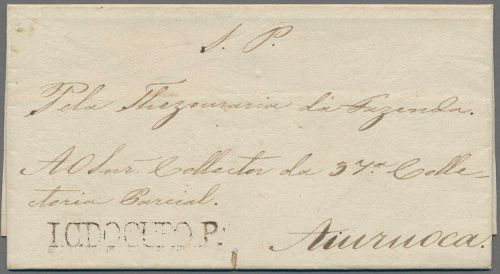 S. P.
Pela Thezouraria da Fazenda.
Ao Snr. Collector da 37ª Colle-
ctoria Parcial.
I.CDOCUPO.P.
Aiuruoca.